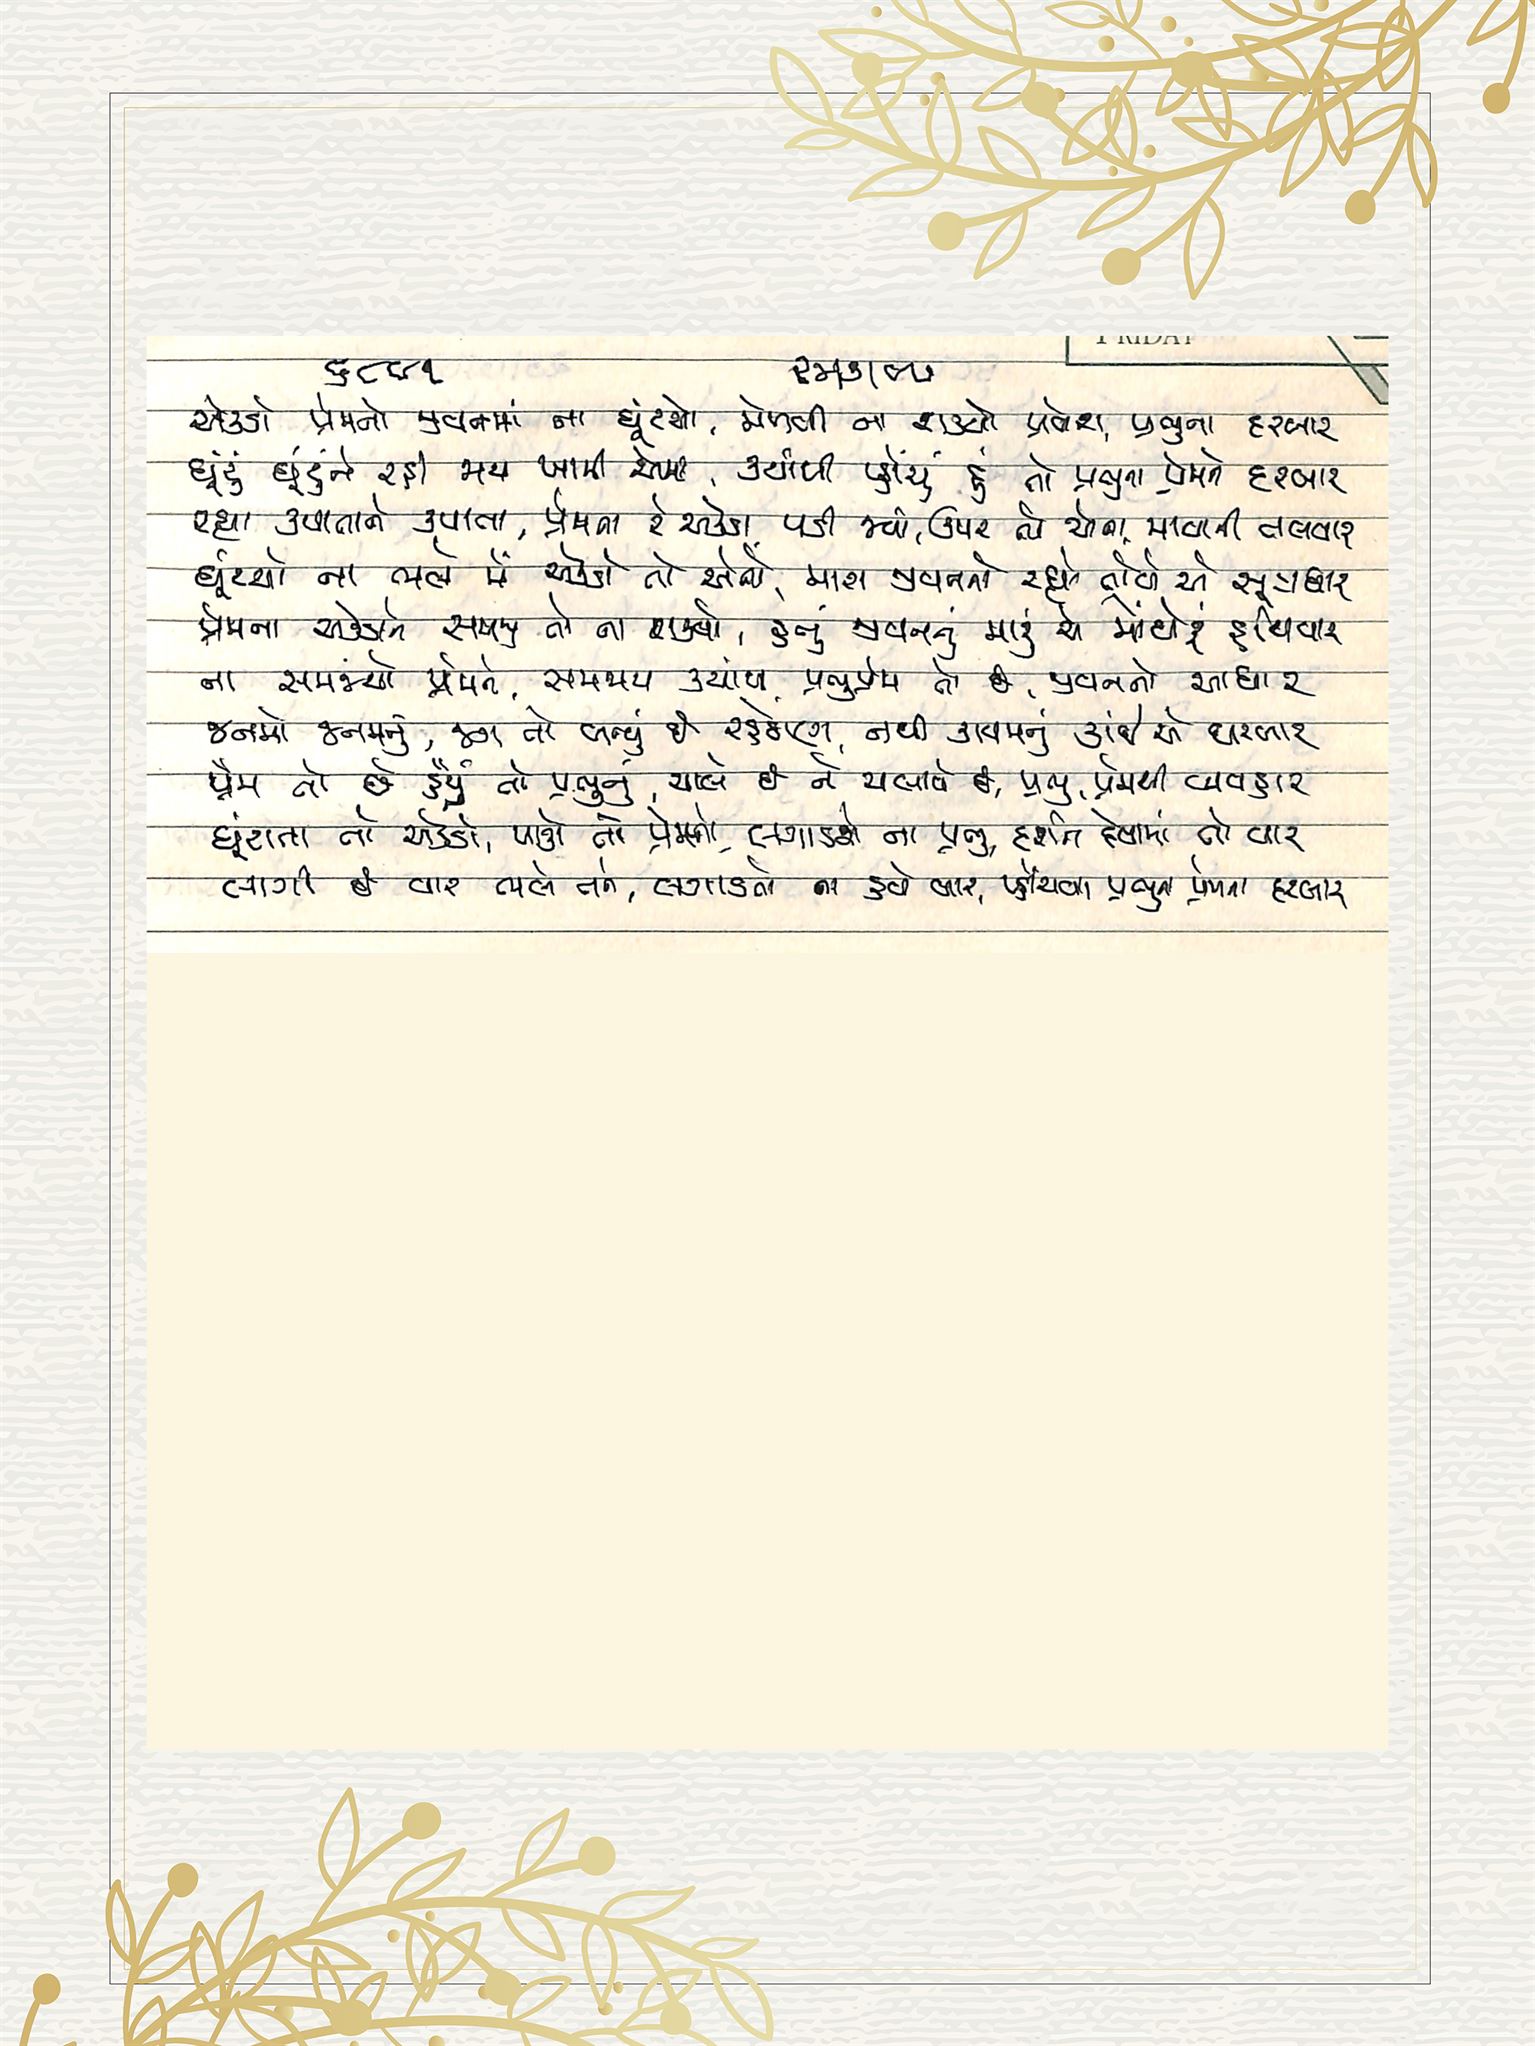 FRIDAY
એકડો પ્રેમનો જીવનમાં ના ઘૂંટયો, મેળવી ના શક્યો પ્રવેશ, પ્રભુના દરબાર
ઘૂંટું ઘૂંટુંને રહી જાય ખામી એમાં, ક્યાંથી પ્હોંચું હું તો પ્રભુના પ્રેમને દરબાર
રહ્યા કપાતાને કપાતા, પ્રેમના રે એકડા, પડી જ્યાં, ઉપર તો એના, માયાની તલવાર
ઘૂંટયો ના ભલે મેં એકડો તો એનો, મારા જીવનનો રહ્યો તોયે એ સૂત્રધાર
પ્રેમના એકડાને સમજી તો ના શક્યો, હતું જીવનનું મારું એ મોંઘેરું હથિયાર
ના સમજ્યો પ્રેમને, સમજાય ક્યાંથી, પ્રભુપ્રેમ તો છે, જીવનનો આધાર
જનમો જનમનું, જગ તો બન્યું છે રહેઠાણ, નથી કાયમનું કાંઈ એ ઘરબાર
પ્રેમ તો છે હૈયું તો પ્રભુનું, ચાલે છે ને ચલાવે છે, પ્રભુ, પ્રેમથી વ્યવહાર
ઘૂંટાતા તો એકડો, પાકો તો પ્રેમનો, લગાડશે ના પ્રભુ, દર્શન દેવામાં તો વાર
લાગી છે વાર ભલે તને, લગાડતો ના હવે વાર, પ્હોંચવા પ્રભુના પ્રેમના દરબાર